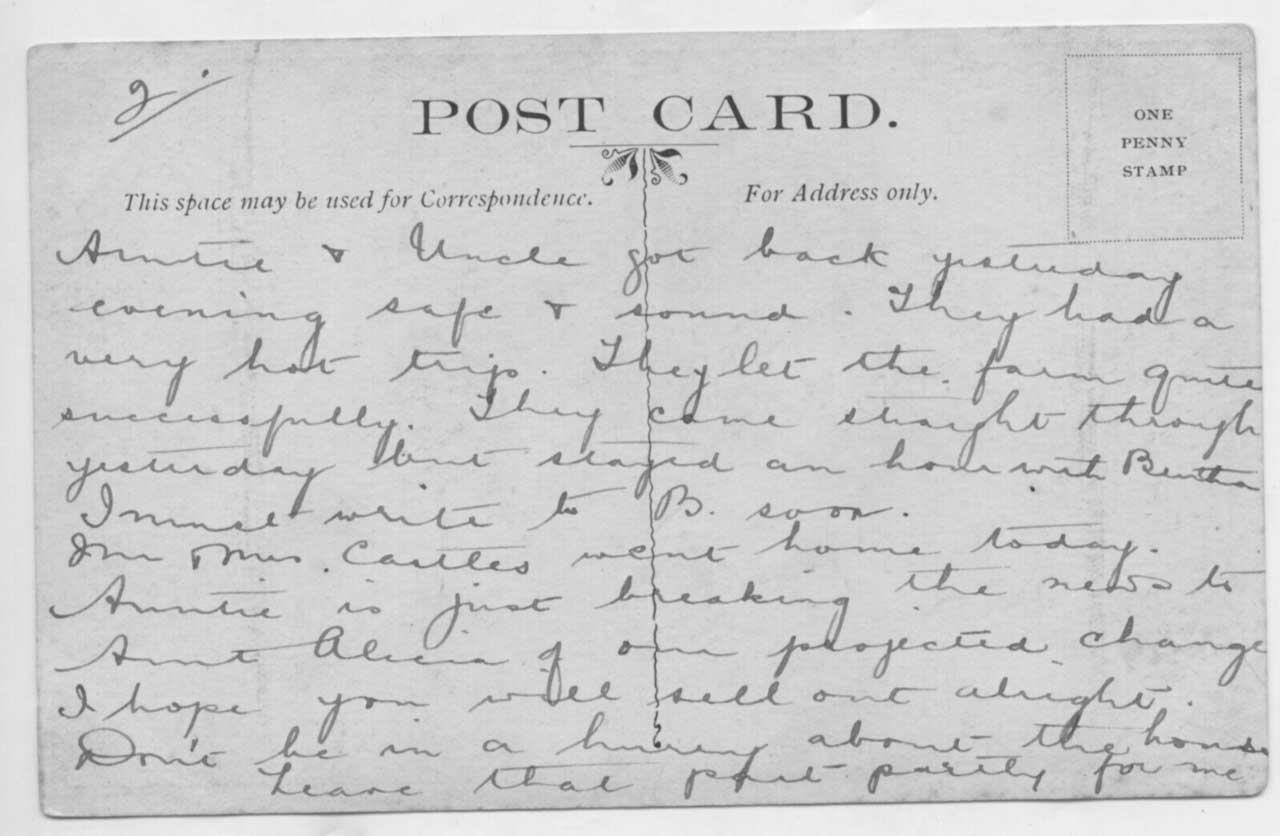 2.
POST CARD.
ONE
PENNY
STAMP
This space may be used for Correspondence.
For Address only.
Auntie & Uncle got back yesterday
evening safe & sound. They had a
very hot trip. They let the farm quite
successfully. They came straight through
yesterday but stayed an hour with Bertha
I must write to B. soon.
Mr & Mrs. Castles went home today.
Auntie is just breaking the news to
Aunt Alicia of our projected change
I hope you will sell out alright.
Don't be in a hurry about the house
Leave that part partly for me